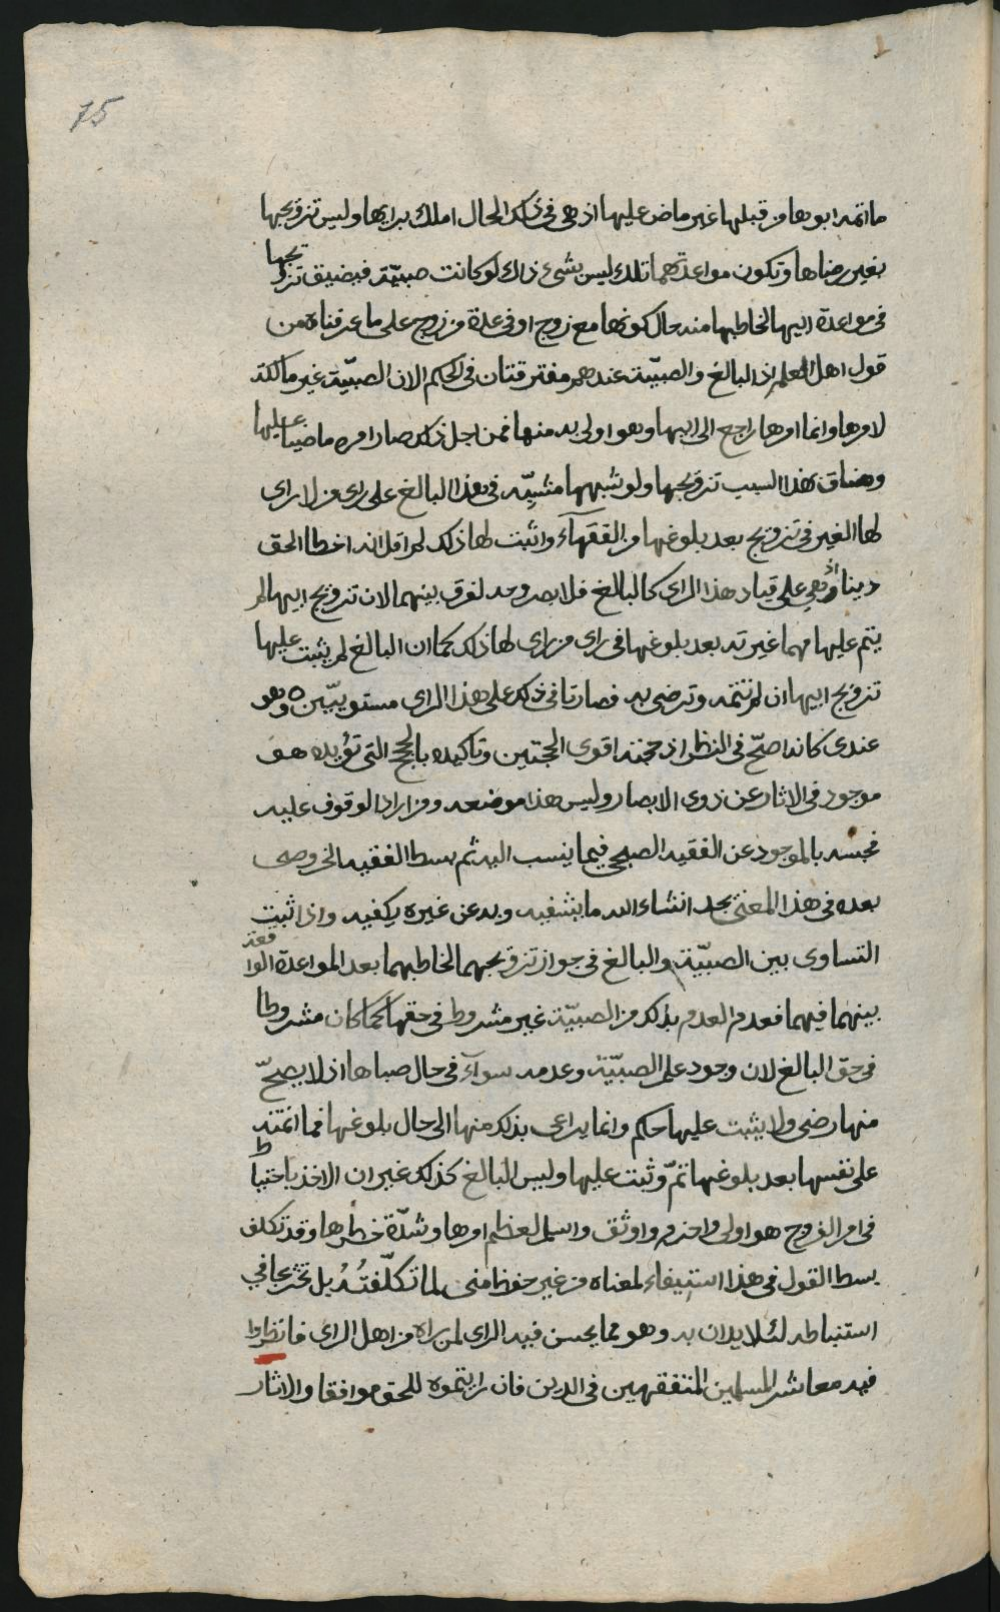 75
ما اتمه ابوها من قبلها غير ماض عليها اذ هي في ذلك الحال املك برايها وليس تزويجها
بغير رضاها وتكون مواعدتهما تلك ليس بشيء ذاك لو كانت صبيّة فيضيق تزويجها
في مواعدة ابيها لخاطبها منه حال كونها مع زوج او في عدة من زوج على ما عرفناه من
قول اهل العلم اذ البالغ والصبيّة عندهم مفترقتان في الحكم الان الصبيّة غير مالكة
لامرها وانما امرها راجع الى ابيها وهو اولى به منها فمن اجل ذلك صار امره ماضيا عليها
وضاق بهذا السبب تزويجها ولو شبهها مشبّه في هذا البالغ على راي من لا راى
لها الغير في تزويج بعد بلوغها من الفقهآء واثبت لها ذلك لم اقل انه اخطا الحق
دينا وهي على قياد هذا الراى كالبالغ فلا يصر وحد لفرق بينهما لان تزويج ابيها لم
يتم عليها مهما غيرته بعد بلوغها في راى من راى لها ذلك كما ان البالغ لم يثبت عليها
تزويج ابيها ان لم تتمه وترضى به فصارتا في ذلك على هذا الراى مستويتين وهو
عندى كانه اصحّ في النظر اذ حجته اقوى الحجتين وتاكيده بالحجج التى تؤيده هو
موجود في الاثار عن ذوى الابصار وليس هذا موضعه ومن اراد الوقوف عليه
فحسبه بالموجود عن الفقيه الصبحي فيما ينسب اليه ثم بسط الفقيه الخروصى
بعده في هذا المعنى يجد انشاء الله ما يشفيه وبه عن غيره يكفيه واذا ثبت
التساوى بين الصبيّة والبالغ في جواز تزويجهما لخاطبهما بعد المواعدة الواقعة
بينهما فيهما فعدم العدم بذلك من الصبيّة غير مشروط في حقها كما كان مشروطا
في حق البالغ لان وجود علم الصبيّة وعدمه سوآء في حال صباها اذ لا يصحّ
منها رضى ولا يثبت عليها حكم وانما يراعى بذلك منها الى حال بلوغها فما اتمته
على نفسها بعد بلوغها تمّ وثبت عليها وليس البالغ كذلك غير ان الاخذ باحتياط
في امر الفروج هو اولى واحزم واوثق واسلم لعظم امرها وشدّة خطرها وقد تكلف
بسط القول في هذا استيفاء لمعناه من غير حفظ منى لما تكلّفتُهُ بل تخريجا في
استنباطه لئلا يدان به وهو مما يحسن فيه الراى لمن راه من اهل الراى فانظروا
فيه معاشر المسلمين المتفقهين في الدين فان رايتموه للحق موافقا والاثار